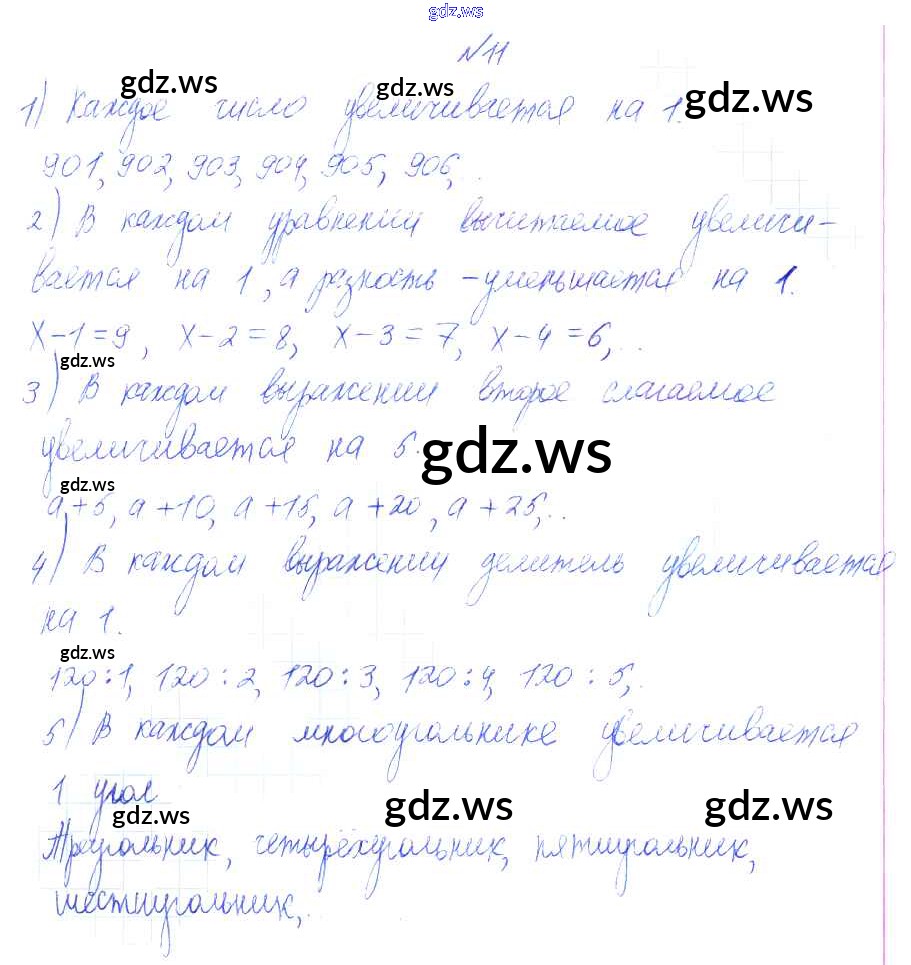 gdz.ws
№11
gdz.ws gdz.ws gdz.ws
1) Каждое число увеличивается на 1.
901, 902, 903, 904, 905, 906,..
2) В каждом уравнении вычитаемое увеличи-
вается на 1, а разность - уменьшается на 1.
x-1=9, x-2=8, x-3=7, x-4=6,..
gdz.ws
3) В каждом выражении второе слагаемое
увеличивается на 5.
gdz.ws
gdz.ws
a+5, a+10, a+15, a+20, a+25,..
4) В каждом выражении делитель увеличивается
на 1.
gdz.ws
120:1, 120:2, 120:3, 120:4, 120:5,.
5) В каждом многоугольнике увеличивается
1 угол
gdz.ws gdz.ws gdz.ws
Треугольник, четырёхугольник, пятиугольник,
шестиугольник,..